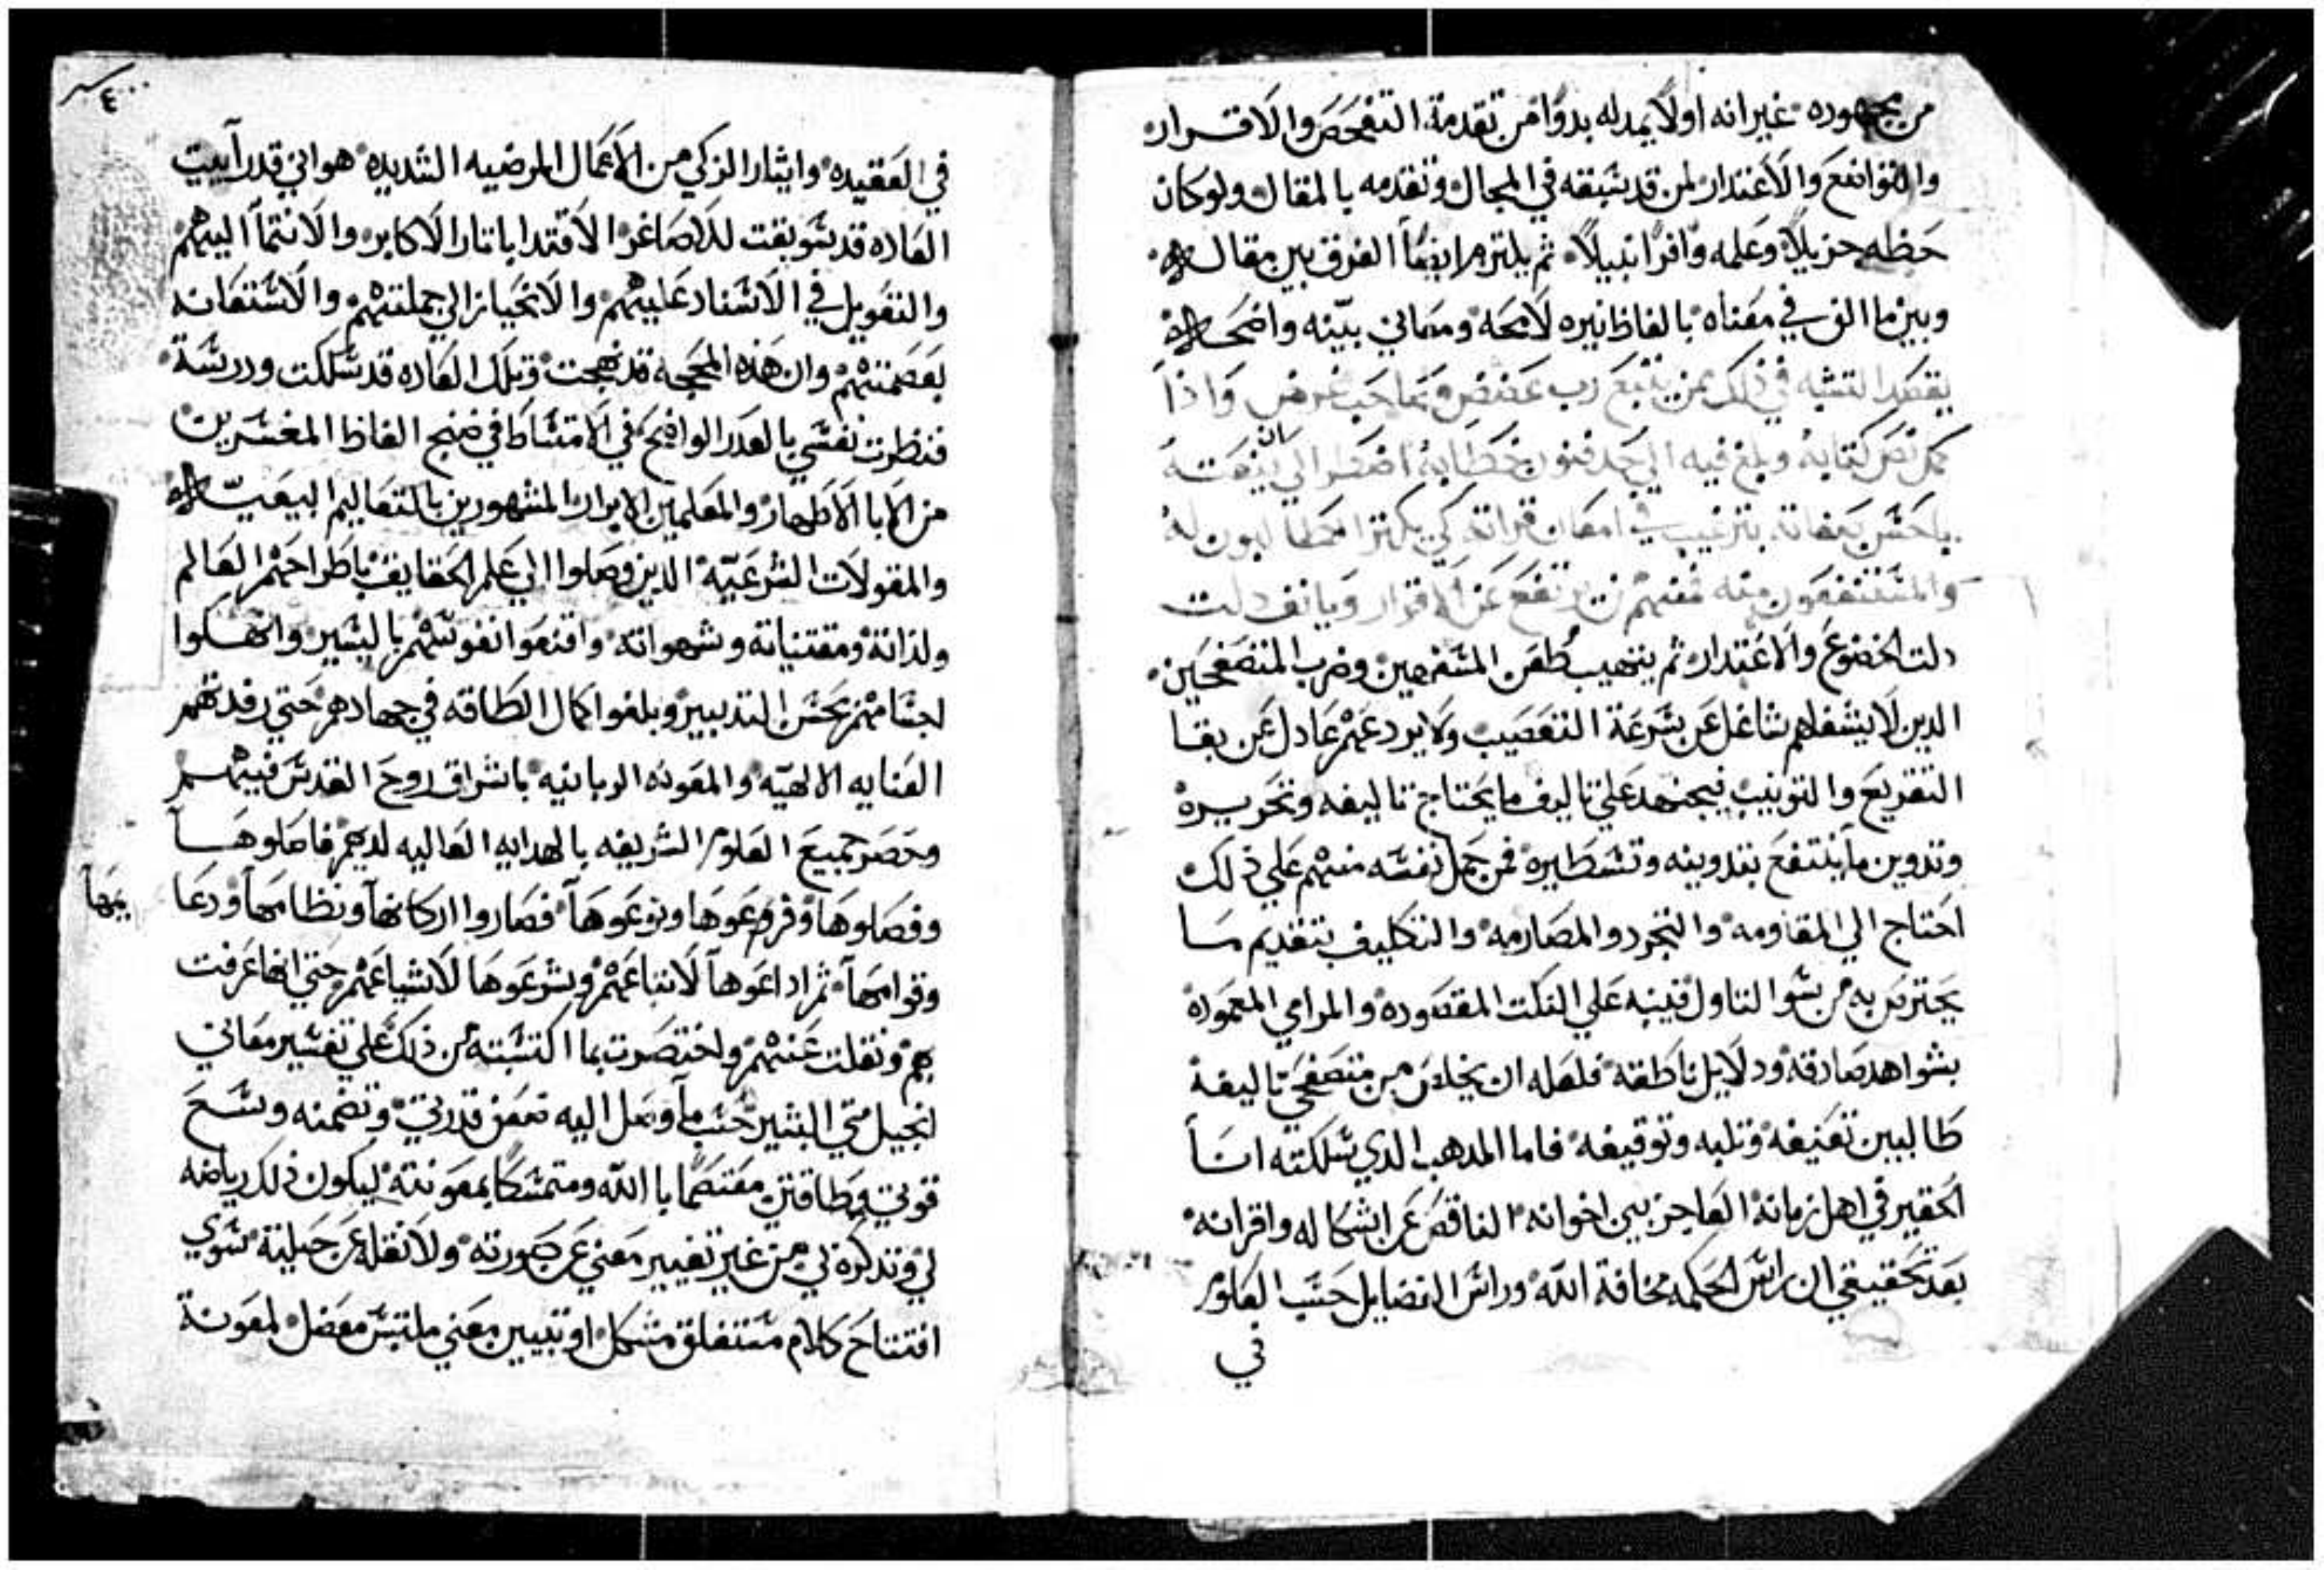 من مجهوده غير انه اولا يمد له بدوا من تقدمة التفحص والاقرار
والتواضع والاعتدار لمن قد سبقه في المجال وتقدمه بالمقال ولو كان
حظه جزيلا وعلمه وافرا نبيلا ثم يلتزم ايضا الفرق بين مقاله
وبين ما الف في معناه بالفاظ نيره لامحه ومعاني بينه واضحه
يقصد التشبه في ذلك بمن يتبع رب غرض واذا
كمل نص كتابه وبلغ فيه الي حد فنون خطابه اضطر الي ان ينعته
باحسن بترغيب في امعان قراته كي يكثر الخطابون له
والمستنفعون منه فمنهم من يرتفع عن الاقرار ويانف دلت
دلت الخضوع والاعتدار ثم يتهيب طعن المسفهين وضرب المتصفحين
الدين لا يشغلهم شاغل عن سرعة التعصيب ولا يردعهم عادل عن بقا
التقريع والتونيب فيجتهد علي تاليف ما يحتاج تاليفه وتحريره
وتدوين ما ينتفع بتدوينه وتسطيره فمن حمل نفسه منهم علي ذلك
احتاج الي المقاومه والتجرد والمصارمه والتكليف بتقديم ما
يحترس به من سوا التاول فينبه علي النكت المقصوده والمرامي المعموده
بشواهد صادقه ودلايل ناطقه فلعله ان يخلص من متصفحي تاليفه
طالبين تعنيفه وتلبه وتوقيفه فاما المدهب الدي سلكته انا
الحقير في اهل زمانه العاجز بين اخوانه الناقص عن اشكاله واقرانه
بعد تحقيقي ان راس الحكمه مخافة الله وراس الفضايل حسب العلوم
في
في العقيده وايثار الزكي من الاعمال المرضيه الشديده هو اني قد رايت
العاده قد سوبقت للاصاغر الاقتدا باثار الاكابر والانتما اليهم
والتعويل في الاسناد عليهم والانحياز الي جملتهم والاستعانه
بعصمتهم وان هذه المحجه قد نهجت وتلك العاده قد سلكت ودرسة
فنظرت نفسي بالعدر الواضح في الامتشاط في ضنج الفاظ المفسرين
من الابا الاطهار والمعلمين الابرار المشهورين بالتعاليم البيعيه
والمقولات الشرعيه الدين وصلوا الي علم الحقايق باطراحهم العالم
ولذاته ومقتنياته وشهواته واقنعوا نفوسهم باليسير وانهكوا
اجسامهم بحسن التدبير وبلغوا كمال الطاقه في جهادهم حتي رفدتهم
العنايه الالهيه والمعونه الربانيه باشراق روح القدس فيهم
وحصر جميع العلوم الشريفه بالهدايه العاليه لديهم فاصلوها
وفصلوها وفرعوها ونوعوها فصاروا اركانها ونظامها ودعا يمها
وقوامها ثم اداعوها لاتباعهم وشرعوها لاشياعهم حتي انها عرفت
بهم ونقلت عنهم واختصرت بما اكتسبته من ذلك علي تفسير معاني
انجيل متي البشير حسب ما وصل اليه بعض قدرتي وتضمنه وسع
قوتي وطاقتي معتصما بالله ومتمسكا بمعونته ليكون ذلك رياضه
لي وتدكرة لي من غير تغيير معني عن صورته ولا نقله عن حيلته سوي
افتتاح كلام مستغلق مشكل او تبيين معني ملتبس معضل لمعونة